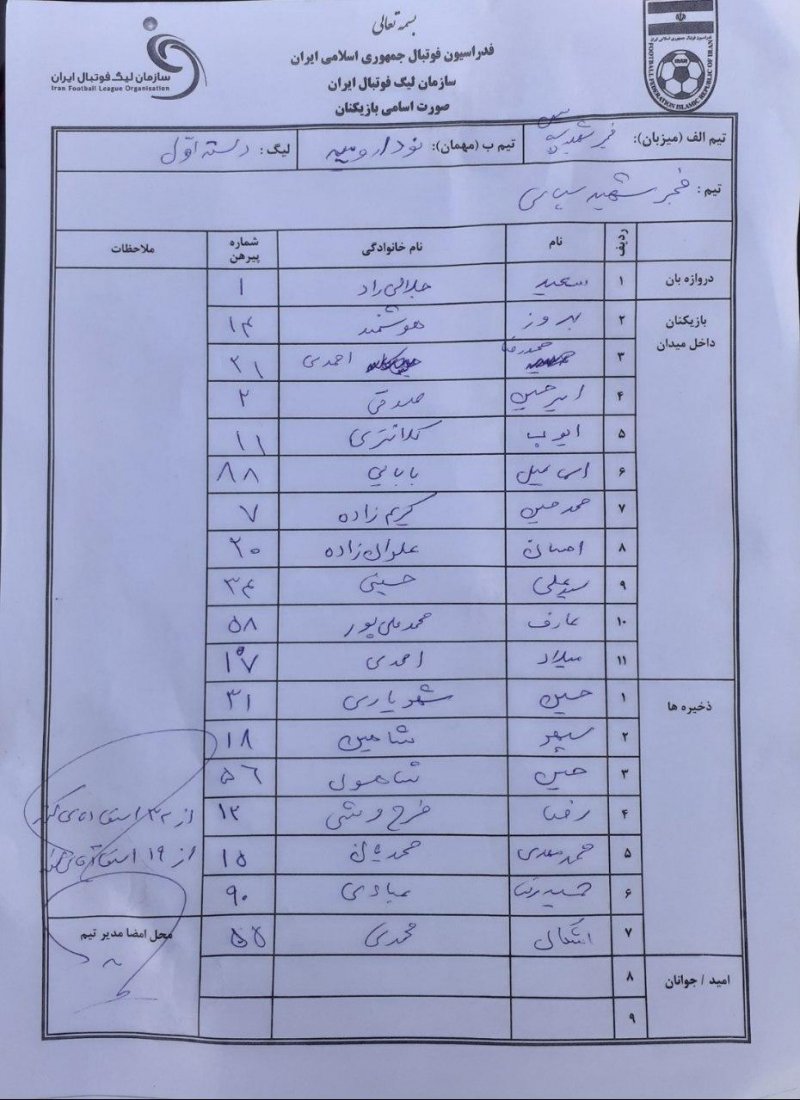 بسمه تعالی
فدراسیون فوتبال جمهوری اسلامی ایران
سازمان لیگ فوتبال ایران
صورت اسامی بازیکنان
سازمان لیگ فوتبال ایران
Iran Football League Organisation
IRAN
FOOTBALL FEDERATION ISLAMIC REPUBLIC OF IRAN
تیم الف (میزبان): فجر شهید سپاسی تیم ب (مهمان): نود ارومیه لیگ: دسته اول
تیم: فجر شهید سپاسی
ردیف نام نام خانوادگی شماره پیرهن ملاحظات
دروازه بان ۱ سعید جلالی راد ۱
بازیکنان داخل میدان ۲ بهروز هوشمند ۱۴
۳ حمیدرضا احمدی ۲۱
۴ امیرحسین صدقی ۲
۵ ایوب کلانتری ۱۱
۶ اسماعیل بابایی ۸۸
۷ محمدحسین کریم زاده ۷
۸ احسان علوان زاده ۲۰
۹ سیدعلی حسینی ۳۴
۱۰ عارف محمدعلی پور ۵۸
۱۱ میلاد احمدی ۱۷
ذخیره ها ۱ حسین شهریاری ۳۱
۲ سپهر شاهین ۱۸
۳ حسین شاهولی ۵۶
۴ رضا فرخ وشی ۱۲
۵ محمدمهدی ۱۵
۶ حمیدرضا عبادی ۹۰
۷ اشکان محمدی ۵۵
امید / جوانان ۸
۹
از ۳۲
از ۱۹
محل امضا مدیر تیم